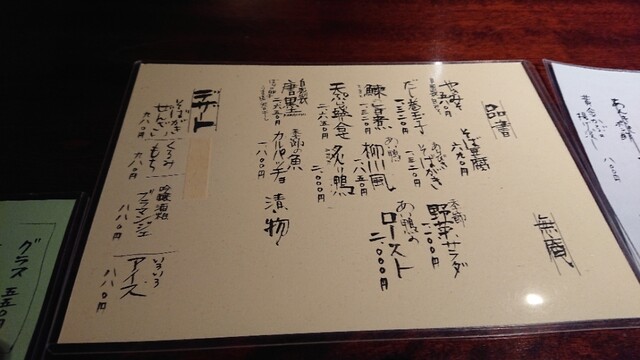 品書
やきみそ
五五〇円
そば豆腐
六六〇円
季節の野菜サダ
二、二〇〇円
だし巻玉子
一、三二〇円
そばがき
一、三二〇円
あい鴨の
ロースト
二、〇〇〇円
鰊旨煮
一、三二〇円
あい鴨
柳川風
一、八五〇円
天然
二、六五〇円
炙り鴨
二、〇〇〇円
自家製
唐墨
二、六五〇円
季節の魚
カルパッチョ
一、八〇〇円
漬物
デザート
そばがき
ぜんざい
六八〇円
くるみ
もち
六八〇円
吟醸酒粕
ブラマンジェ
八八〇円
いろいろ
アイス
八八〇円
グラス 五五〇円